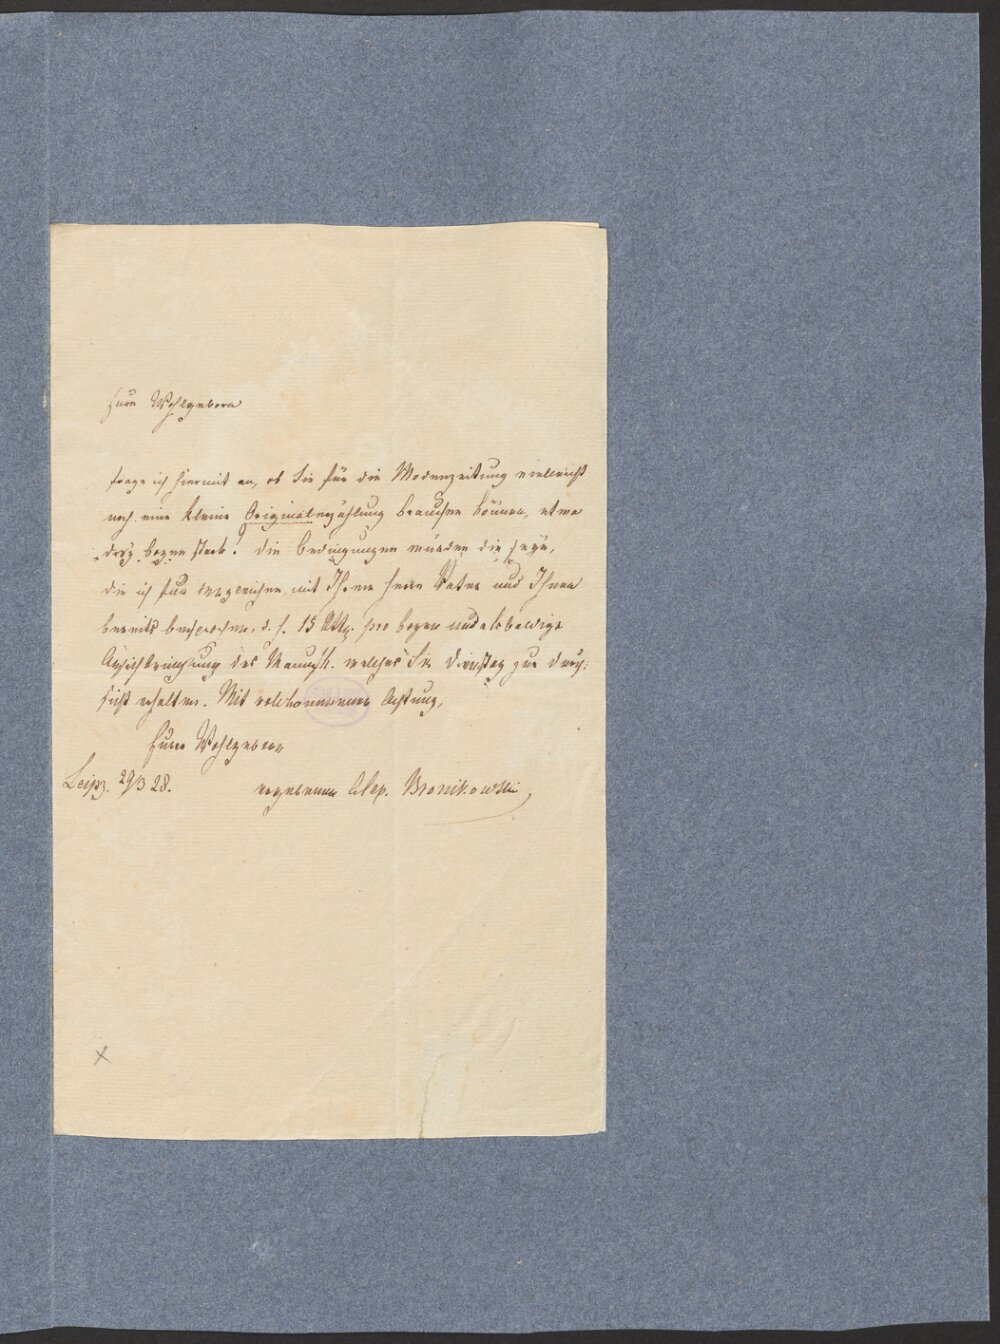 Euer Wohlgeborn
frage ich hiermit an, ob Sie für die Modenzeitung vielleicht
noch eine kleine Originalerzählung brauchen können, etwa
drey Bogen stark? Die Bedingungen würden die seyn,
die ich für dergleichen mit Ihrem Herrn Vater und Ihnen
bereits besprochen, d. h. 15 Rthlr. pro Bogen und alsbaldige
des Manuscr. welches Sie Dienstag zur Durch-
sicht erhalten. Mit vollkommener Achtung,
Euer Wohlgeborn
Leipz. 29/3 28.
ergebener Alex. Bronikowski